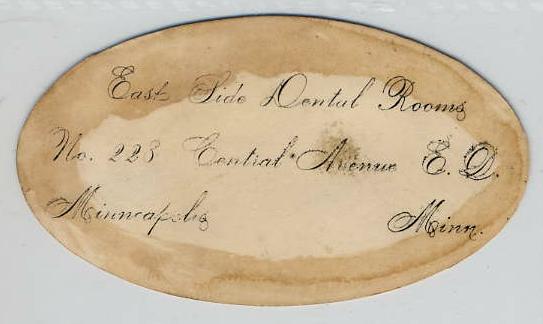 East Side Dental Rooms
No. 223 Central Avenue E. D.
Minneapolis Minn.